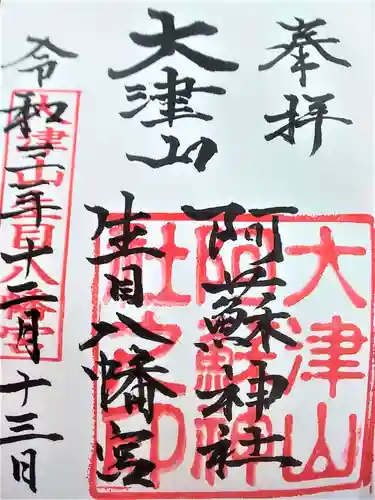 奉拝
大津山
阿蘇神社
生目八幡宮
令和二年十二月十三日
大津山
阿蘇神
社之印
大津山生目八幡宮